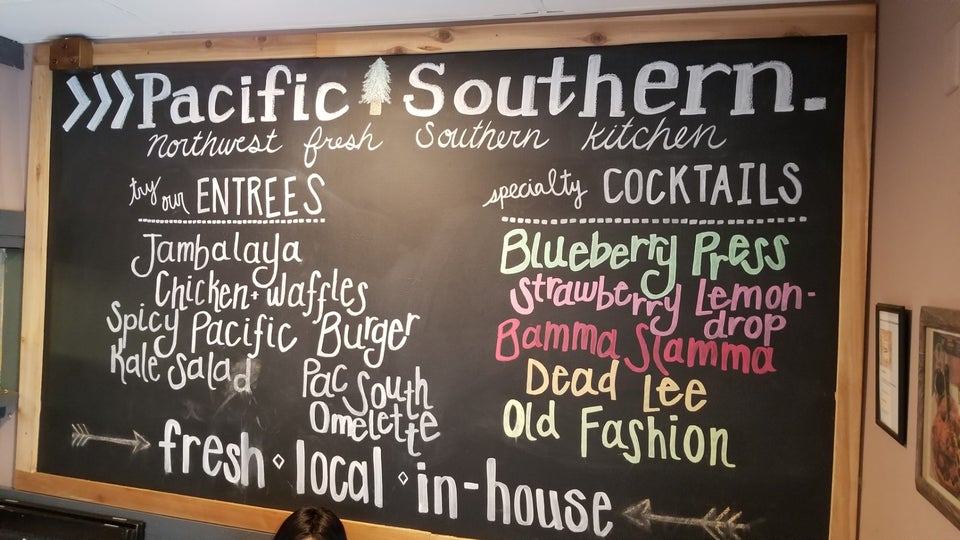 >>> Pacific Southern.
Northwest fresh Southern kitchen
try our ENTREES
Jambalaya
Chicken + Waffles
Spicy Pacific Burger
Kale Salad
Pac South
Omelette
specialty COCKTAILS
Blueberry Press
Strawberry Lemon-
drop
Bamma Slamma
Dead Lee
Old Fashion
fresh ⋄ local ⋄ in-house